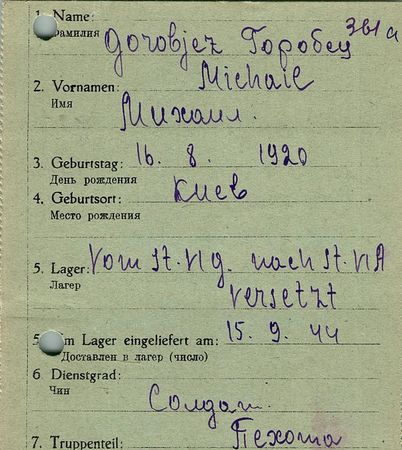 1. Name: Gorobjez Горобец 361 a
Фамилия
2. Vornamen: Michail
Имя Михаил.
3. Geburtstag: 16. 8. 1920
День рождения
4. Geburtsort: Киев
Место рождения
5. Lager: Vom St. VI g. nach St. VI A
Лагер versetzt
5 Im Lager eingeliefert am: 15. 9. 44
Доставлен в лагер (число)
6. Dienstgrad:
Чин Солдат.
7. Truppenteil: Пехота